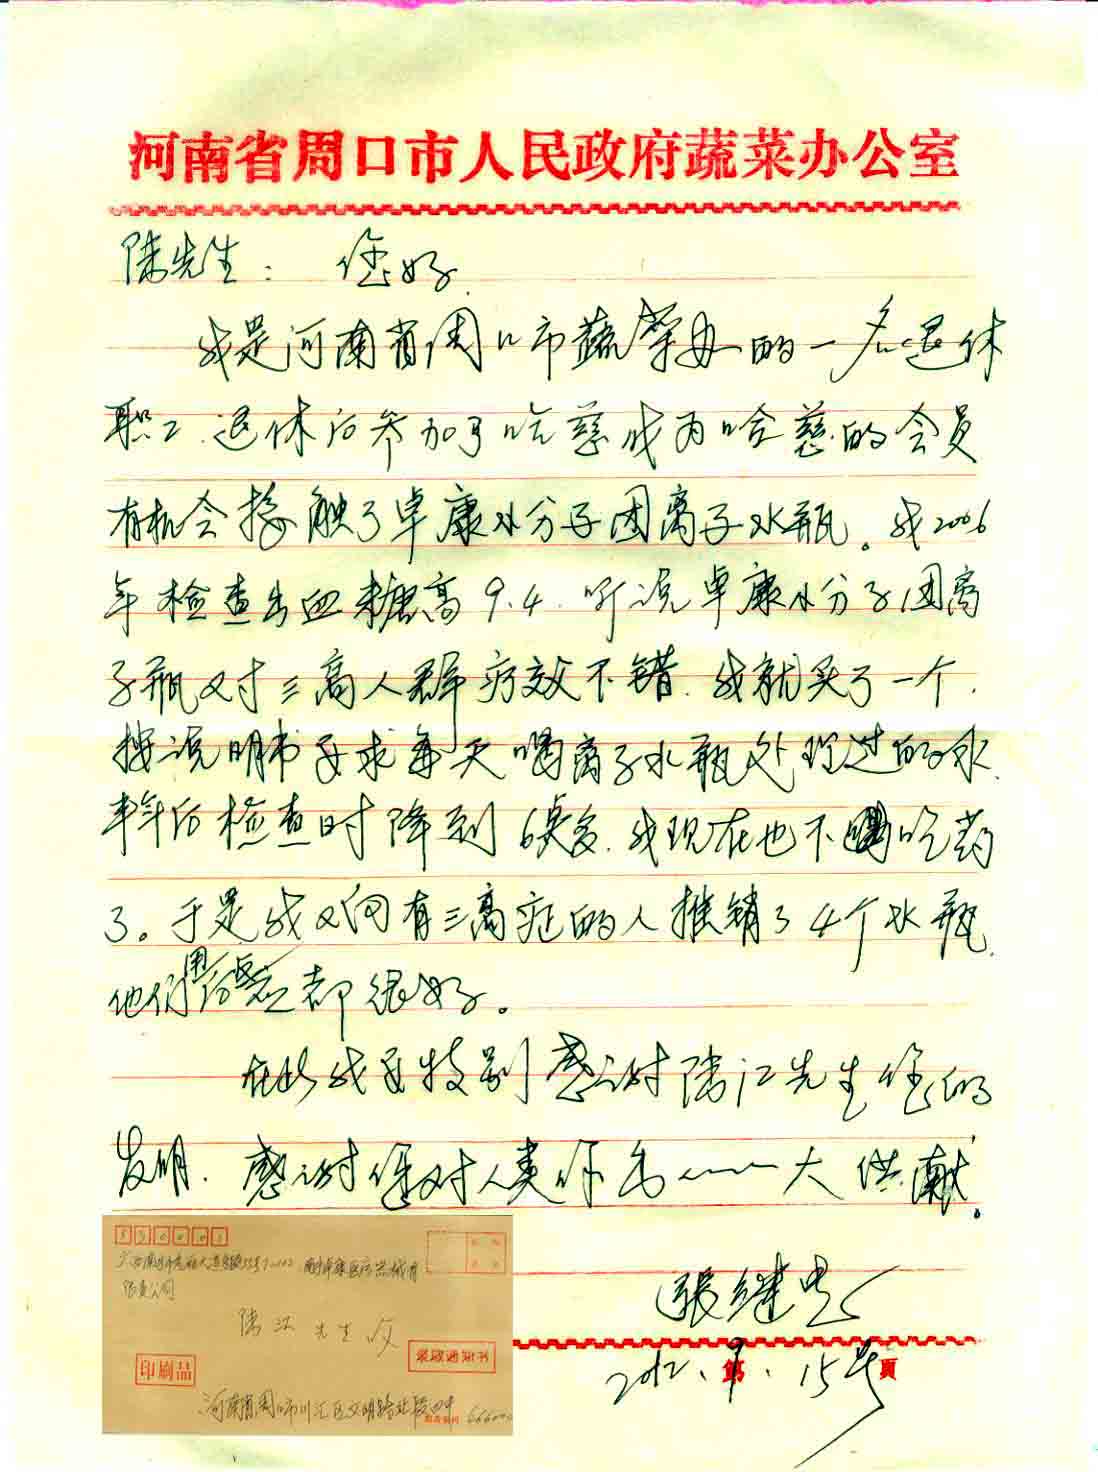 河南省周口市人民政府蔬菜办公室
陈先生：您好
我是河南省周口市蔬菜办的一名退休
职工.退休后参加了哈慈成为哈慈的会员
有机会接触了卓康小分子团离子水瓶。我2006
年检查出血糖高9.4.听说卓康小分子团离
子瓶对三高人群疗效不错.我就买了一个.
按说明书要求每天喝离子水瓶处理过的水.
半年后检查时降到6点多.我现在也不吃药
了。于是我又向有三高症的人推销了4个水瓶.
他们用后反应都很好。
在此我要特别感谢陈江先生您的
发明.感谢您对人类作出大供献。
张继忠
2012.9.15号
第 頁
530003
限责公司
陈江先生收
印刷品
河南省周口市川汇区文明路北段